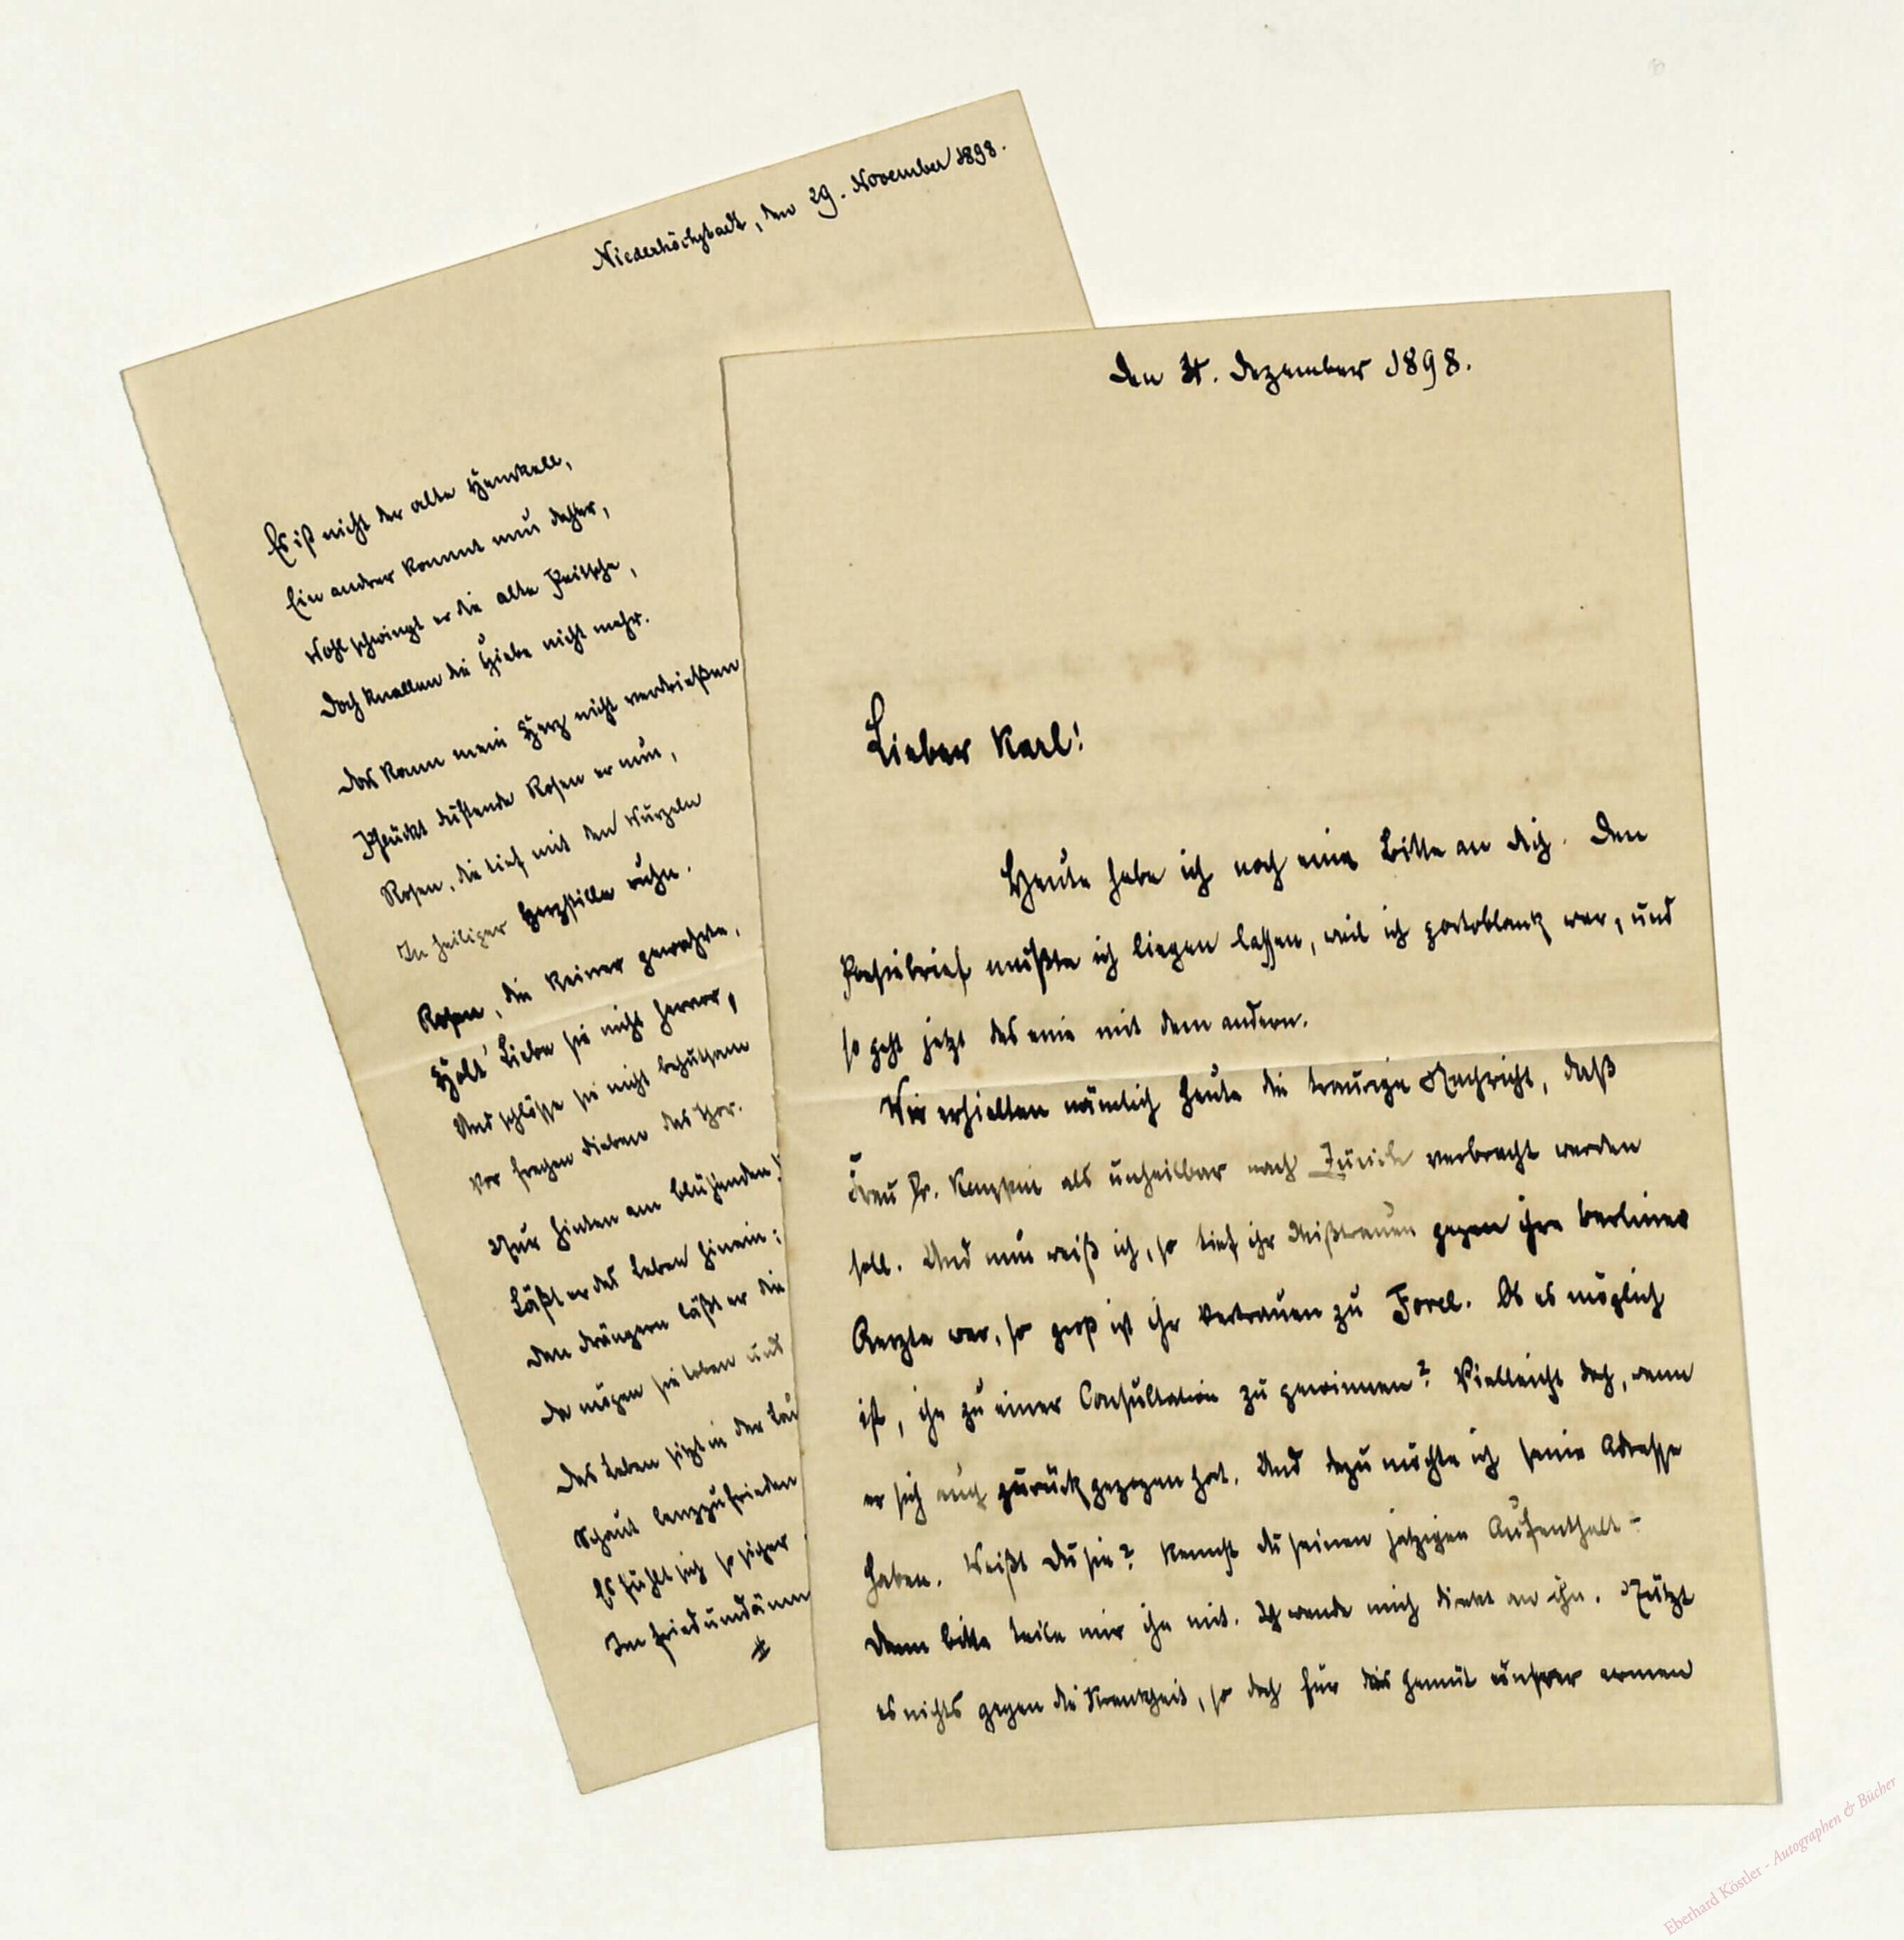 Niederhöchstadt, den 29. November 1898.
Es ist nicht der alte Henckell,
Ein andrer kommt nun daher,
Wohl schwingt er die alte Peitsche,
Doch knallen die Hiebe nicht mehr.
Das kann mein Herz nicht verdrießen
Pflückt duftende Rosen er nun,
Rosen, die tief mit den Wurzeln
In heiliger Herzstille ruhn.
Rosen, die keiner gewahrte,
Hält' Liebe sie nicht hervor,
Und schlösse sie nicht behutsam
Vor frechen Dieben das Thor.
Nur hinten am blühenden
Läßt er das Leben hinein:
Den Drängern läßt er die
Da mögen sie toben und
Das Leben sitzt in der
Schaut lenzzufrieden
Es fühlt sich so sicher
Im
Den 31. Dezember 1898.
Lieber Karl!
Heute habe ich noch eine Bitte an Dich. Den
Poesiebrief mußte ich liegen lassen, weil ich portoblank war, und
so geht jetzt das eine mit dem andern.
Wir erhielten nämlich heute die traurige Nachricht, daß
Frau Dr. als unheilbar nach Zürich verbracht werden
soll. Und nun weiß ich, so tief ihr Mißtrauen gegen ihre Berliner
Aerzte war, so groß ist ihr Vertrauen zu Forel. Ob es möglich
ist, ihn zu einer Consultation zu gewinnen? Vielleicht doch, wenn
er sich auch zurückgezogen hat. Und dazu möchte ich seine Adresse
haben. Weißt Du sie? Kennst du seinen jetzigen Aufenthalt-
Dann bitte teile mir ihn mit. Ich wende mich direkt an ihn. Nützt
es nichts gegen die Krankheit, so doch für das Gemüt unsrer armen
Eberhard Köstler - Autographen & Bücher